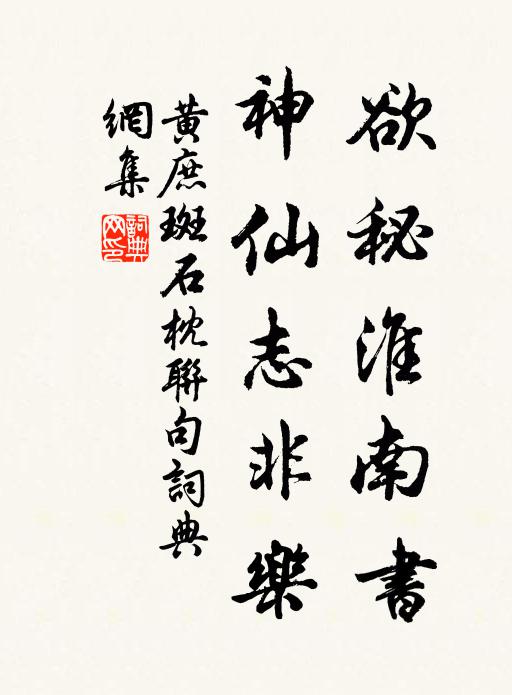 欲秘淮南書
神仙志非樂
黃庶斑石枕聯句詞典
網集
詞典
网印